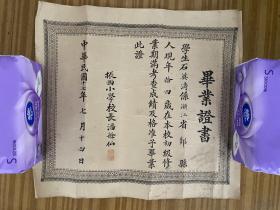 畢業證書
學生石英濤係浙江省鄞縣
人現年拾四歲在本校初級修
業期滿考查成績及格准予畢業
此證
振西小學校長潘
中華民國十七年七月十日
S
S